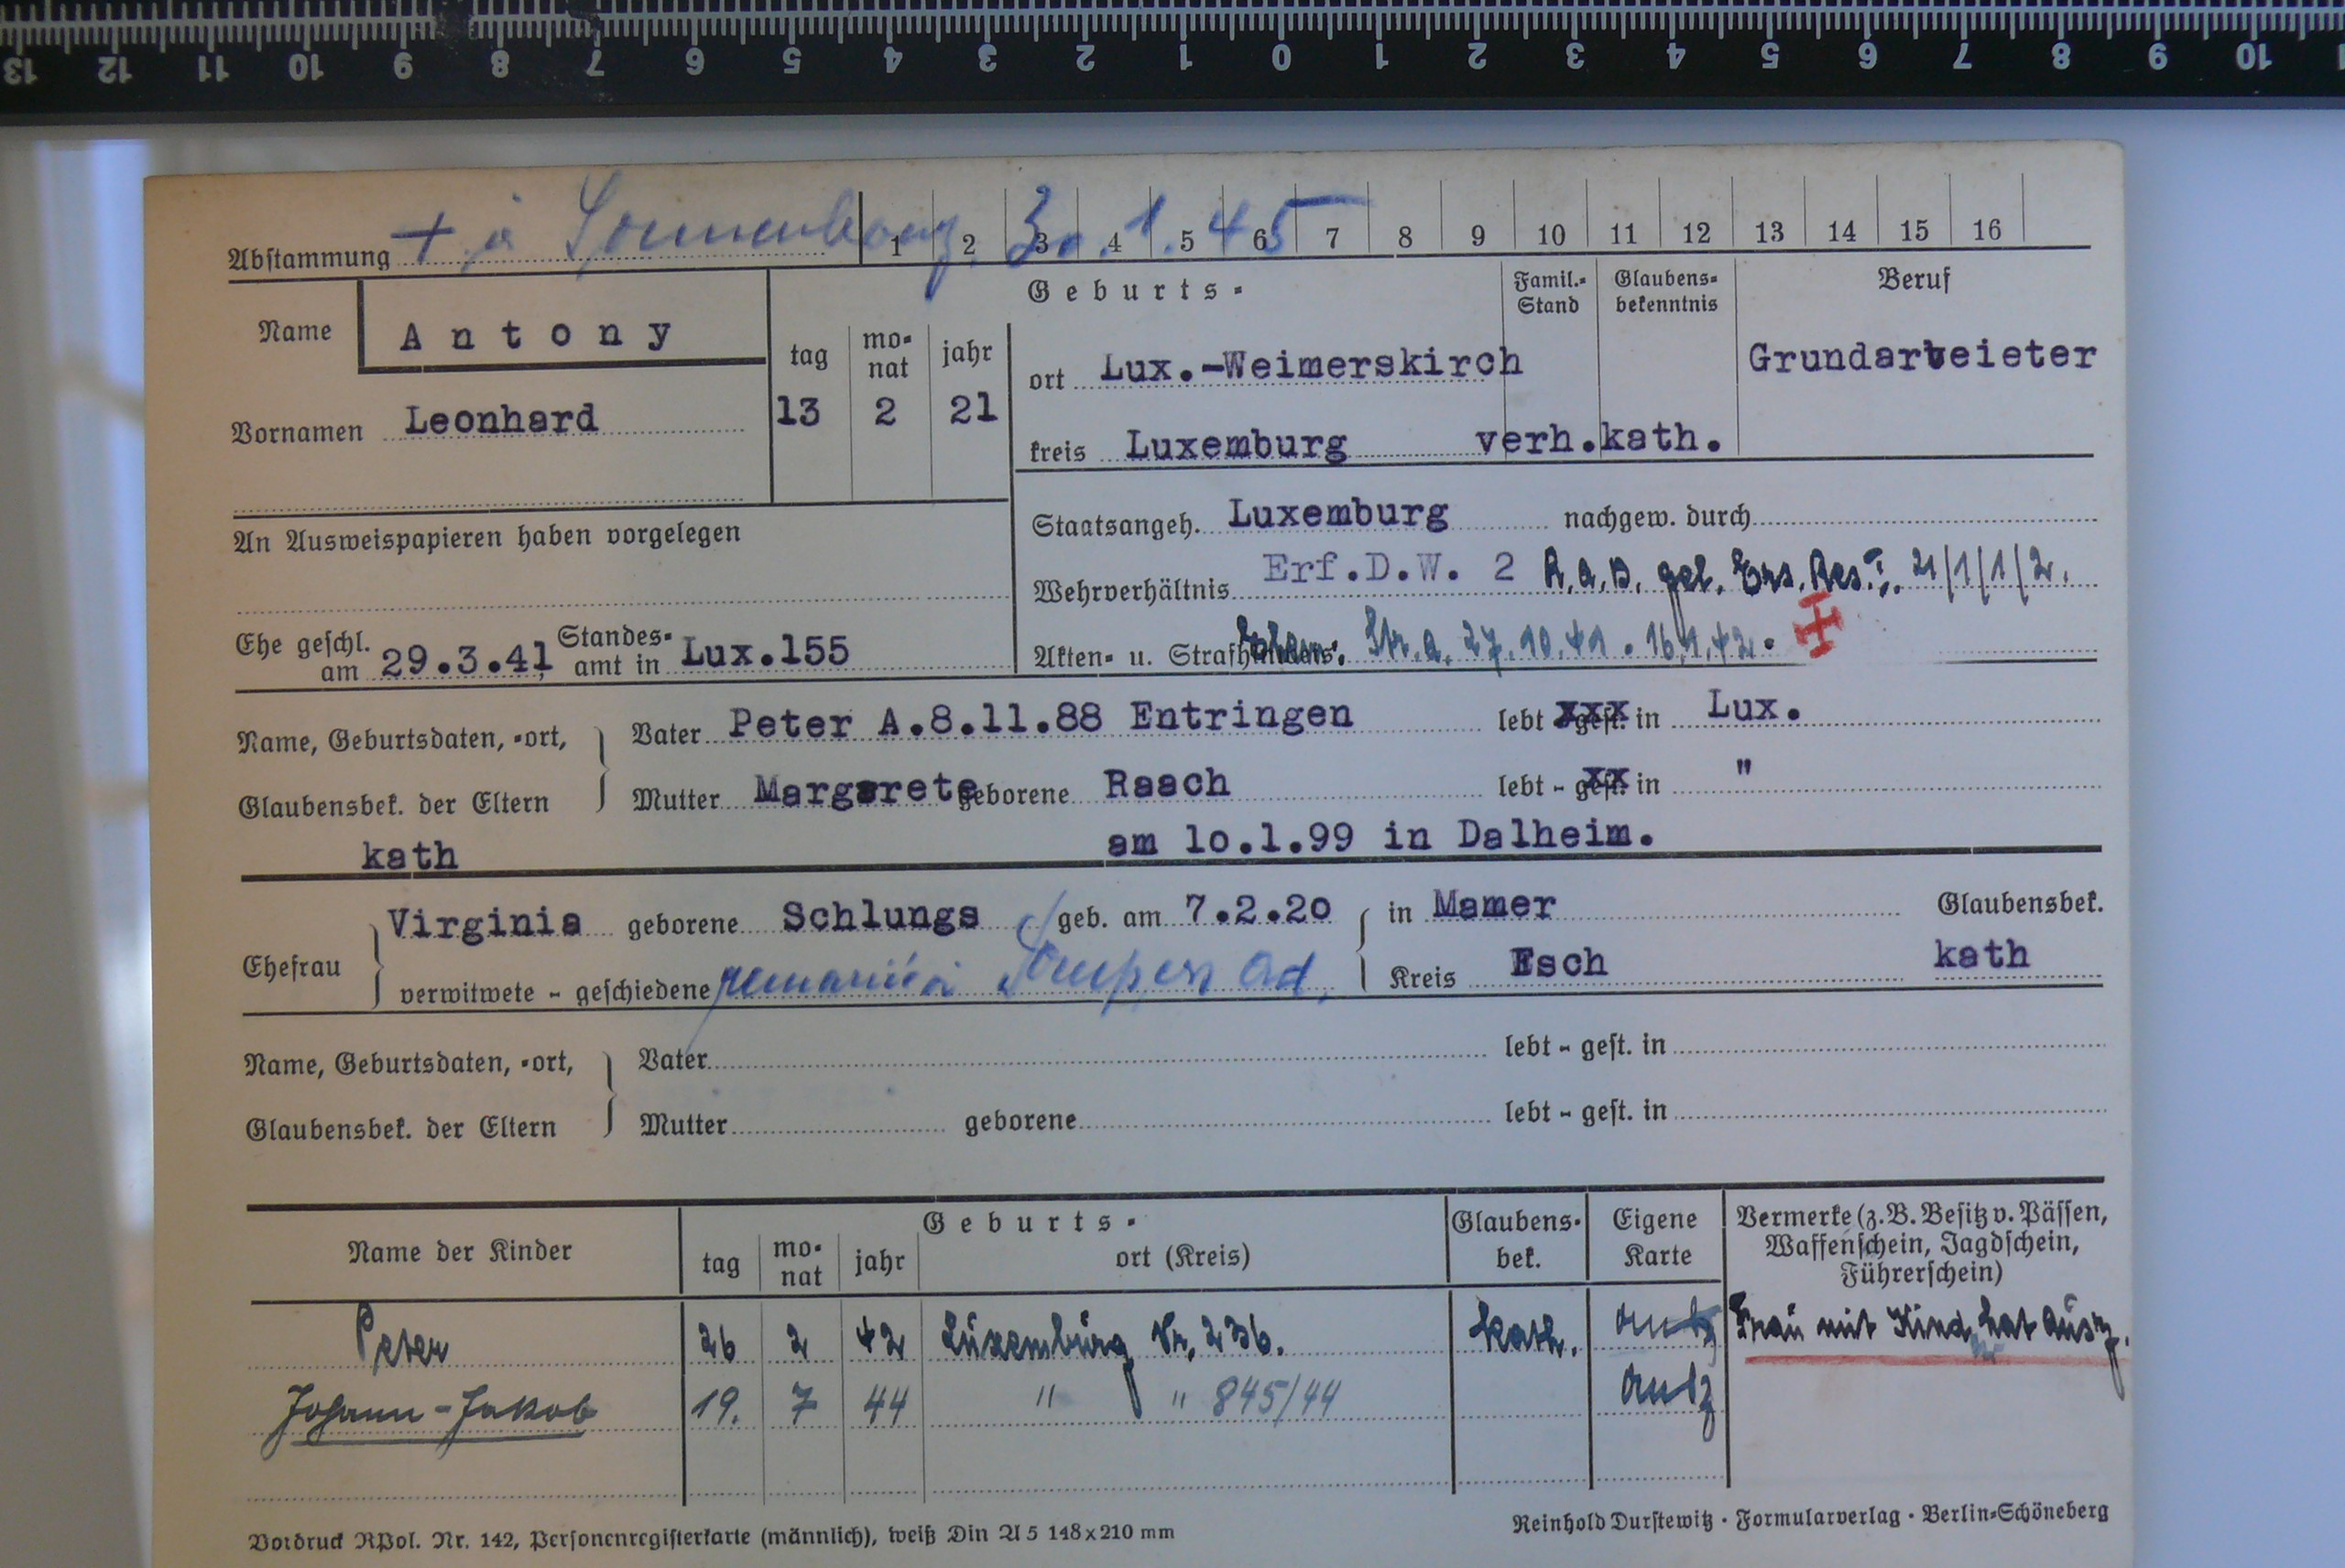 13 12 11 10 9 8 7 6 5 4 3 2 1 0 1 2 3 4 5 6 7 8 9 10
Abstammung + à Sonnenbourg, 30.1.45
1 2 3 4 5 6 7 8 9 10 11 12 13 14 15 16
Name Antony
Vornamen Leonhard
Geburts-
tag monat jahr
13 2 21
ort Lux.-Weimerskirch
kreis Luxemburg
Famil.-Stand
verh.
Glaubensbekenntnis
kath.
Beruf
Grundarbeieter
An Ausweispapieren haben vorgelegen
Staatsangeh. Luxemburg nachgew. durch
Wehrverhältnis Erf.D.W. 2 R.a.D. gel. Ers. Res. I. 21/1/1/2.
Ehe geschl. am 29.3.41 Standesamt in Lux.155
Akten- u. Straf Str. a. 27.10.41. 16.1.42.
Name, Geburtsdaten, -ort, Glaubensbek. der Eltern
kath
Vater Peter A.8.11.88 Entringen lebt xxx gest. in Lux.
Mutter Margarete geborene Raach lebt - gest. in "
am 10.1.99 in Dalheim.
Ehefrau Virginia geborene Schlungs geb. am 7.2.20 in Mamer Glaubensbek.
verwitwete - geschiedene remariée à Ad. Kreis Esch kath
Name, Geburtsdaten, -ort, Glaubensbek. der Eltern
Vater lebt - gest. in
Mutter geborene lebt - gest. in
Name der Kinder
Geburts-
tag monat jahr ort (Kreis)
Glaubensbek.
Eigene Karte
Vermerke (z. B. Besitz v. Pässen, Waffenschein, Jagdschein, Führerschein)
Peter 26 2 42 Luxemburg Nr. 236. kath. Frau mit Kind hat Ausz.
Johann-Jakob 19. 7 44 " " 845/44
Vordruck RPol. Nr. 142, Personenregisterkarte (männlich), weiß Din A 5 148x210 mm
Reinhold Durstewitz · Formularverlag · Berlin-Schöneberg